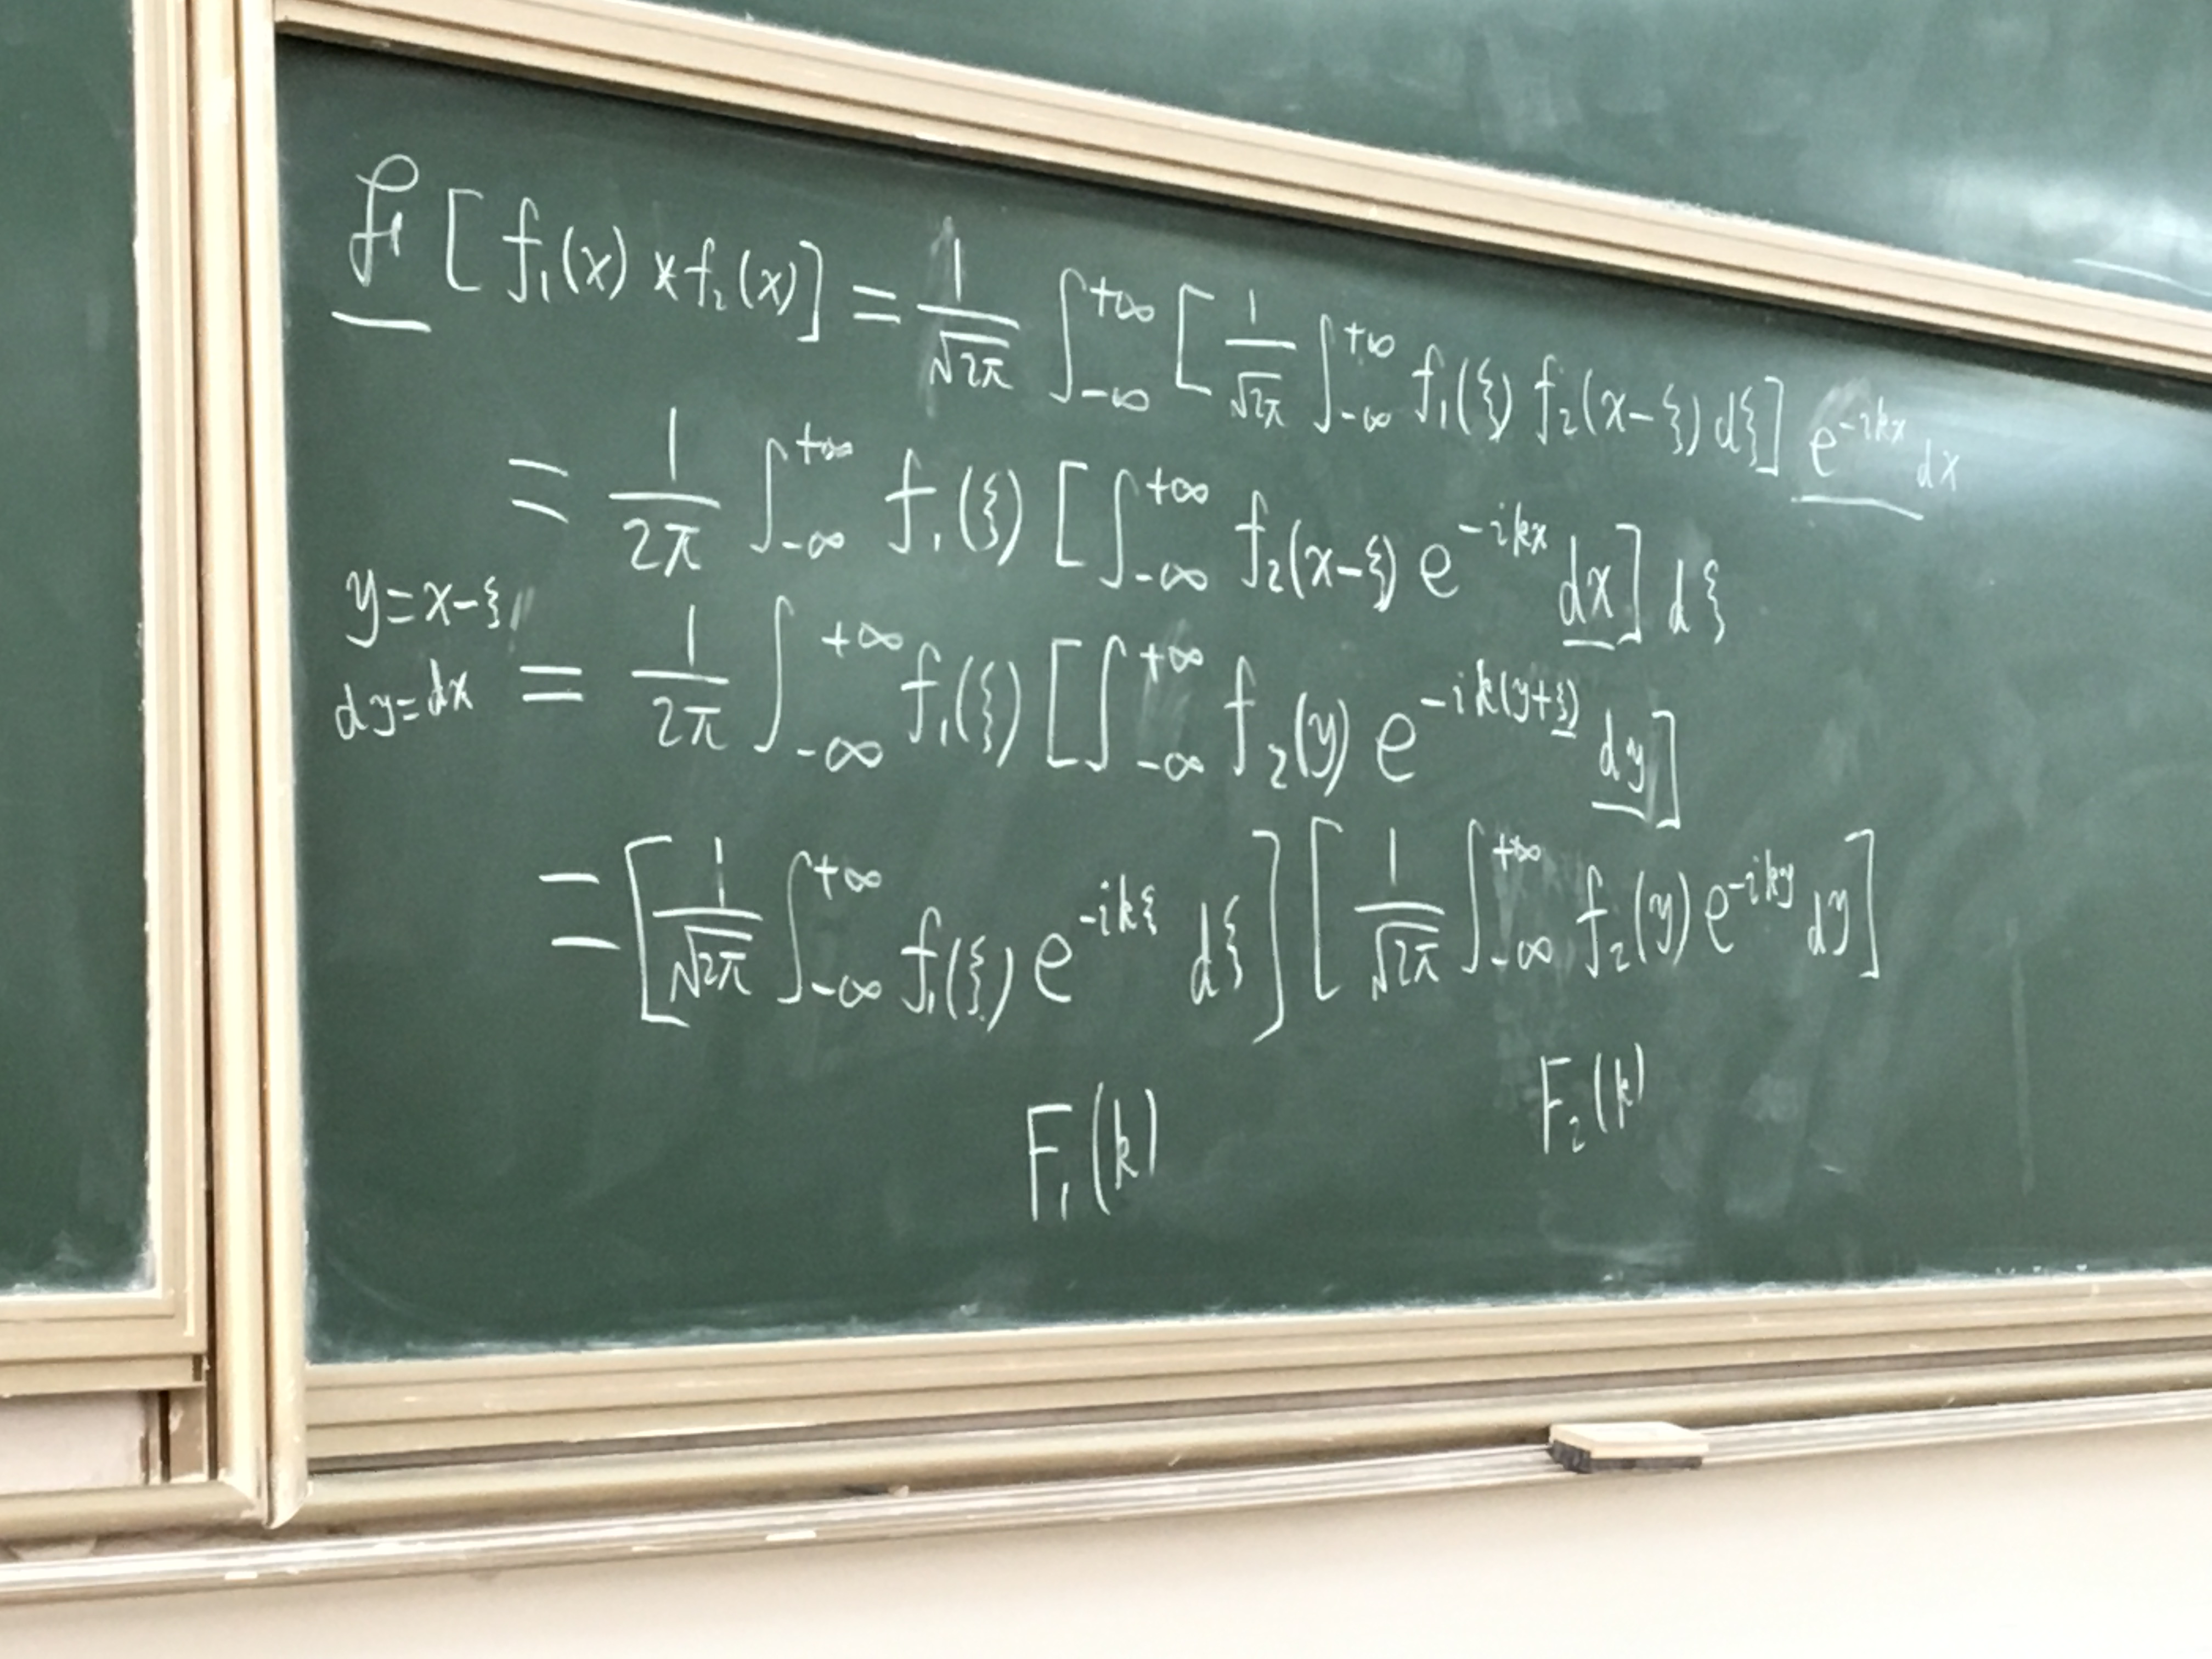 ℱ [f₁(x) * f₂(x)] = 1/√2π ∫₋∞^+∞ [1/√2π ∫₋∞^+∞ f₁(ξ) f₂(x-ξ) dξ] e^-ikx dx
= 1/2π ∫₋∞^+∞ f₁(ξ) [∫₋∞^+∞ f₂(x-ξ) e^-ikx dx] dξ
y=x-ξ
dy=dx = 1/2π ∫₋∞^+∞ f₁(ξ) [∫₋∞^+∞ f₂(y) e^-ik(y+ξ) dy]
= [1/√2π ∫₋∞^+∞ f₁(ξ) e^-ikξ dξ] [1/√2π ∫₋∞^+∞ f₂(y) e^-iky dy]
F₁(k) F₂(k)